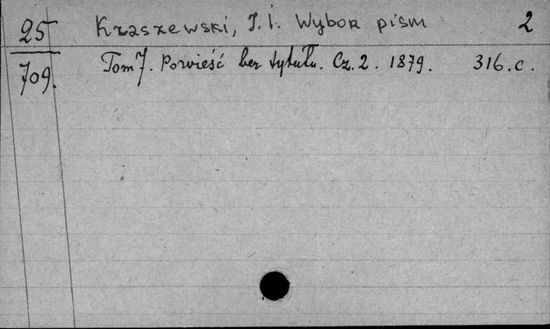 25 Kraszewski, J. I. Wybor pism 2
709. Tom 7. Powieść bez tytułu. Cz. 2. 1879. 316. c.